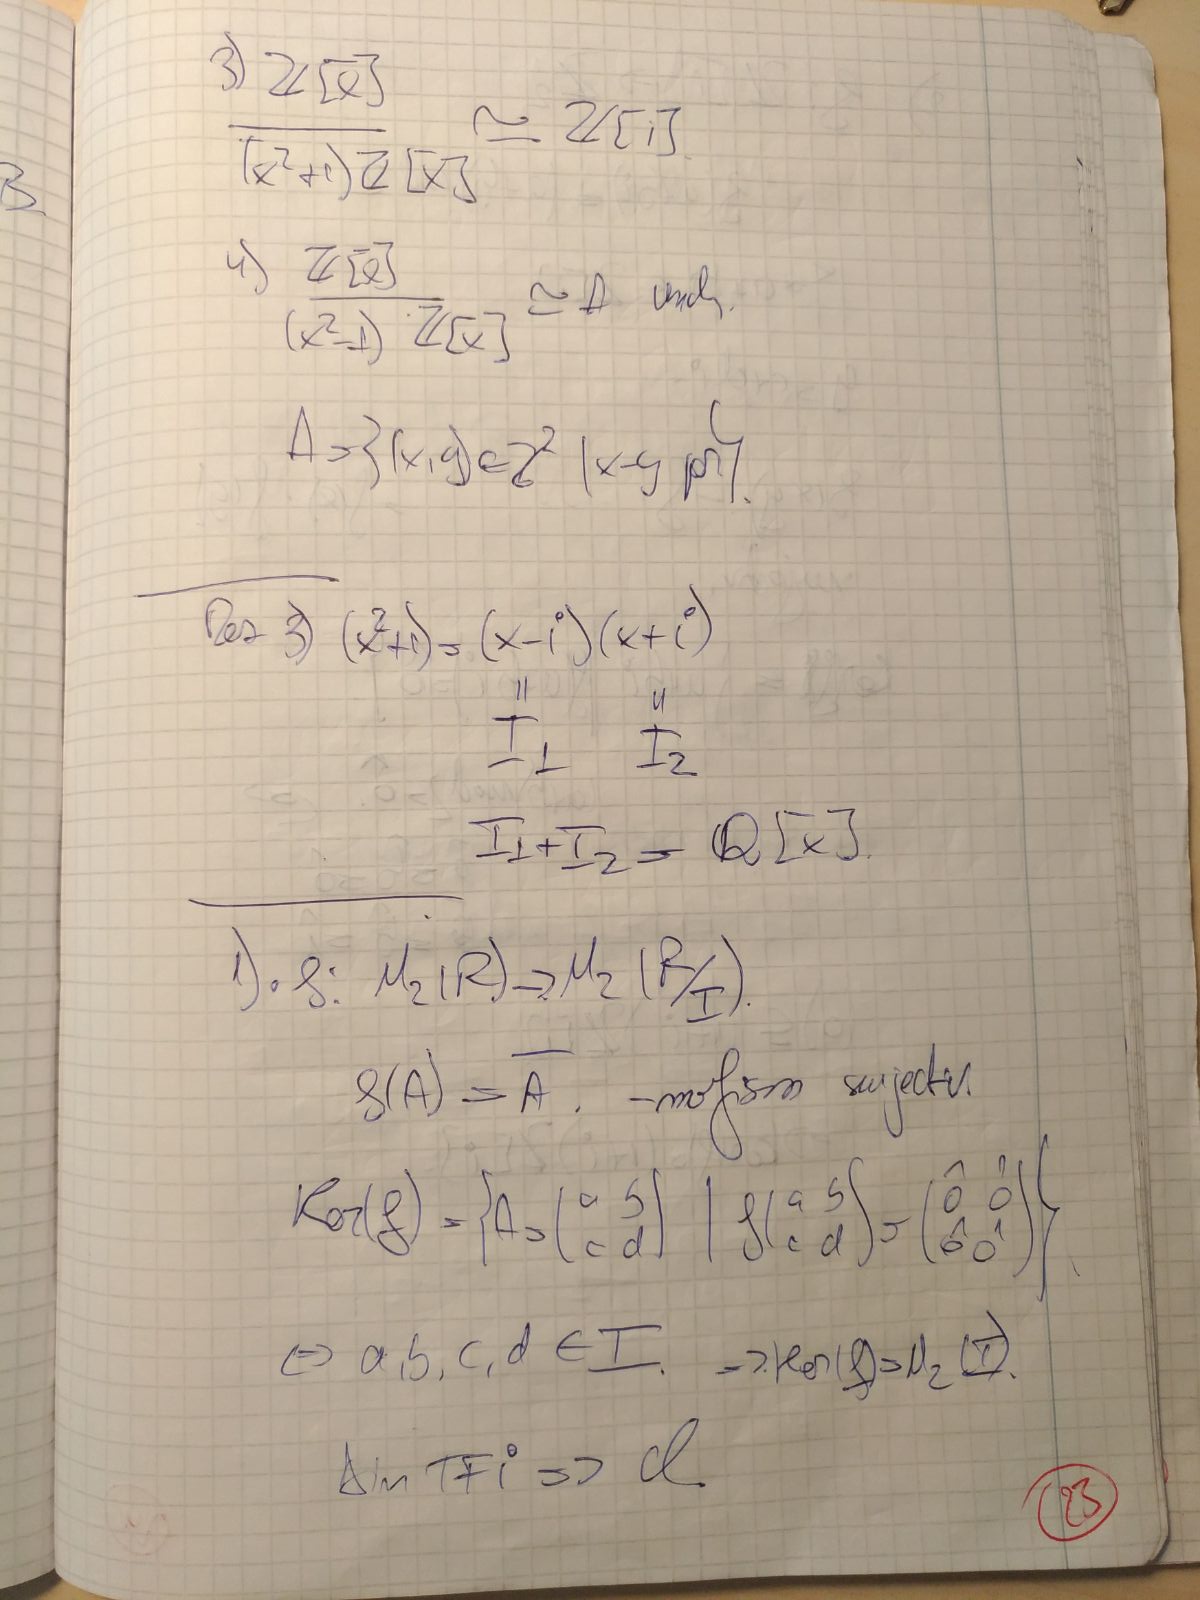 3) ℤ[x] / (x²+1)ℤ[x] ≃ ℤ[i].
4) ℤ[x] / (x²-1) ℤ[x] ≃ A unde.
A = {(x,y) ∈ ℤ² | x-y par}.
Rez 3) (x²+1) = (x-i)(x+i)
॥ ॥
I₁ I₂
I₁+I₂ = Q[x].
1). f: M₂(R) → M₂(R/I).
f(A) = A̅. - morfism surjectiv.
Ker(f) = {A = (a b c d) | f(a b c d) = (0̂ 0̂ 0̂ 0̂)}.
⇔ a, b, c, d ∈ I. ⇒ Ker(f) = M₂(I).
Din TFi ⇒ cl.
23
B